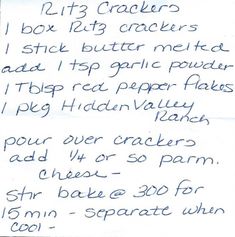 Ritz Crackers
1 box Ritz crackers
1 stick butter melted
add 1 tsp garlic powder
1 Tblsp red pepper flakes
1 pkg Hidden Valley
Ranch
pour over crackers
add 1/4 or so parm.
cheese -
stir bake @ 300 for
15 min - separate when
cool -